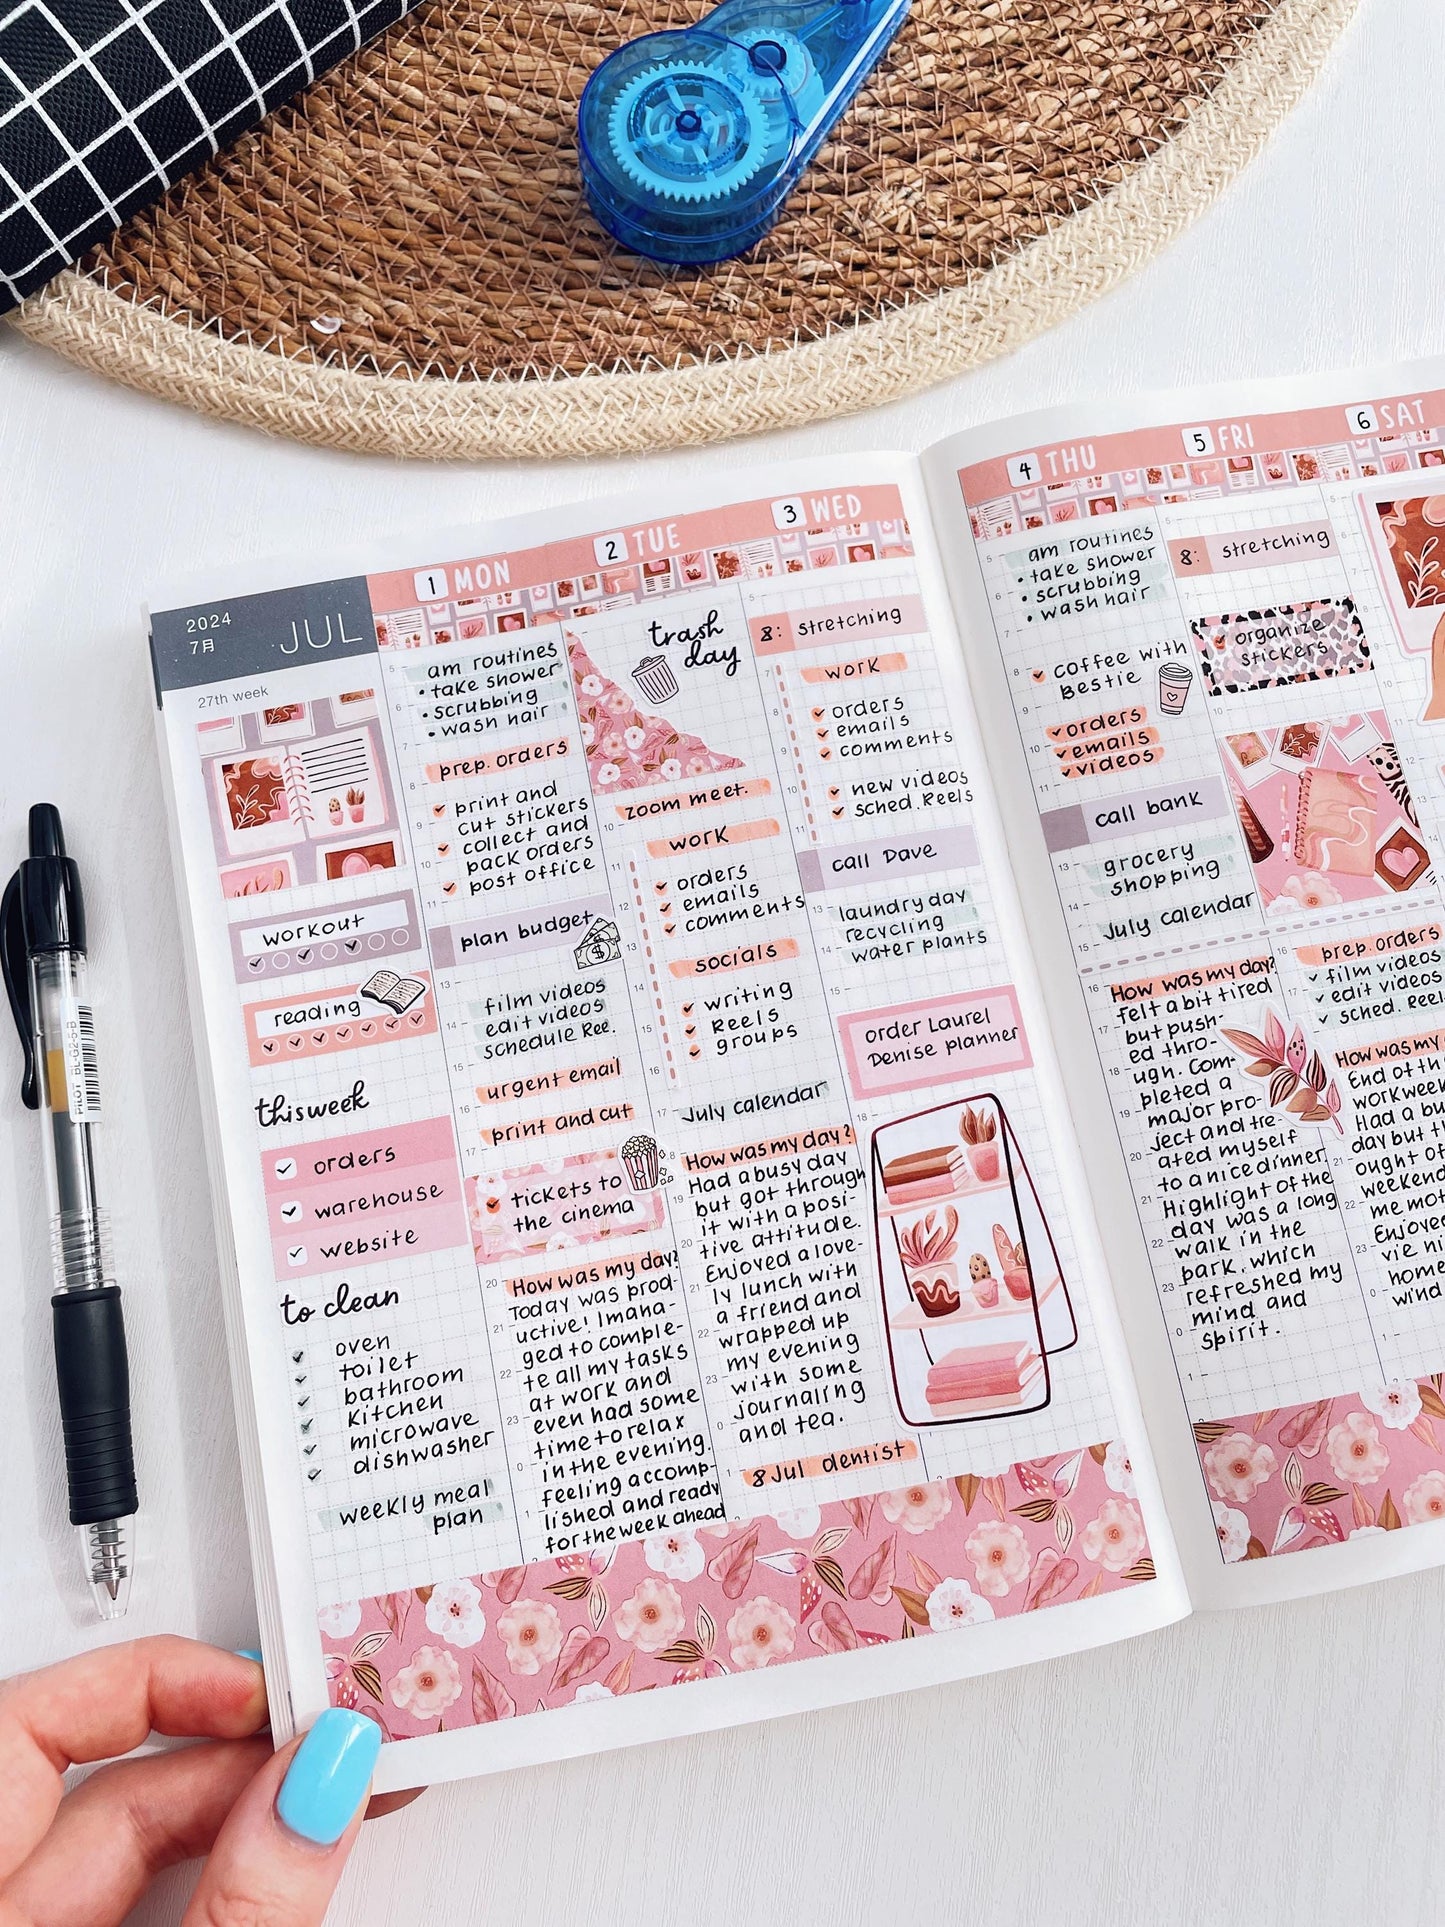 2024
7月
JUL
27th week
workout
reading
this week
orders
warehouse
website
to clean
oven
toilet
bathroom
kitchen
microwave
dishwasher
weekly meal
plan
1 MON
am routines
• take shower
• scrubbing
• wash hair
prep. orders
print and
cut stickers
collect and
pack orders
post office
plan budget
film videos
edit videos
schedule Ree.
urgent email
print and cut
tickets to
the cinema
How was my day?
Today was prod-
uctive! I mana-
ged to comple-
te all my tasks
at work and
even had some
time to relax
in the evening.
Feeling accomp-
lished and ready
for the week ahead
2 TUE
trash
day
zoom meet.
work
orders
emails
comments
socials
writing
Reels
groups
July calendar
How was my day?
Had a busy day
but got through
it with a posi-
tive attitude.
Enjoyed a love-
ly lunch with
a friend and
wrapped up
my evening
with some
journaling
and tea.
8 Jul dentist
3 WED
8: stretching
work
orders
emails
comments
new videos
sched. Reels
call Dave
laundry day
recycling
water plants
order Laurel
Denise planner
4 THU
am routines
• take shower
• scrubbing
• wash hair
coffee with
Bestie
orders
emails
videos
call bank
grocery
shopping
July calendar
How was my day?
felt a bit tired
but push-
ed thro-
ugh. Com-
pleted a
major pro-
ject and tre-
ated myself
to a nice dinner.
Highlight of the
day was a long
walk in the
park, which
refreshed my
mind and
spirit.
5 FRI
8: stretching
organize
stickers
prep. orders
film videos
edit videos
sched. Reel
How was my
End of th
workweek
Had a bu
day but t
ought of
weekend
me mot
Enjoye
vie ni
home
wind
6 SAT
PILOT BL-G2-5-B